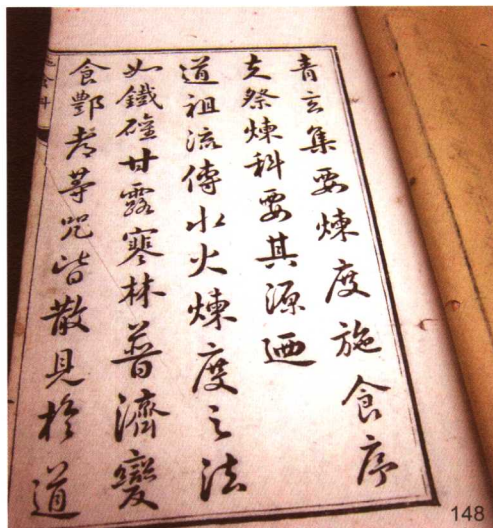 青玄集要煉度施食序
夫祭煉科要其源廼
道祖流傳水火煉度之法
如鐵礶甘露寒林普濟變
食酆都等咒皆散見於道
148